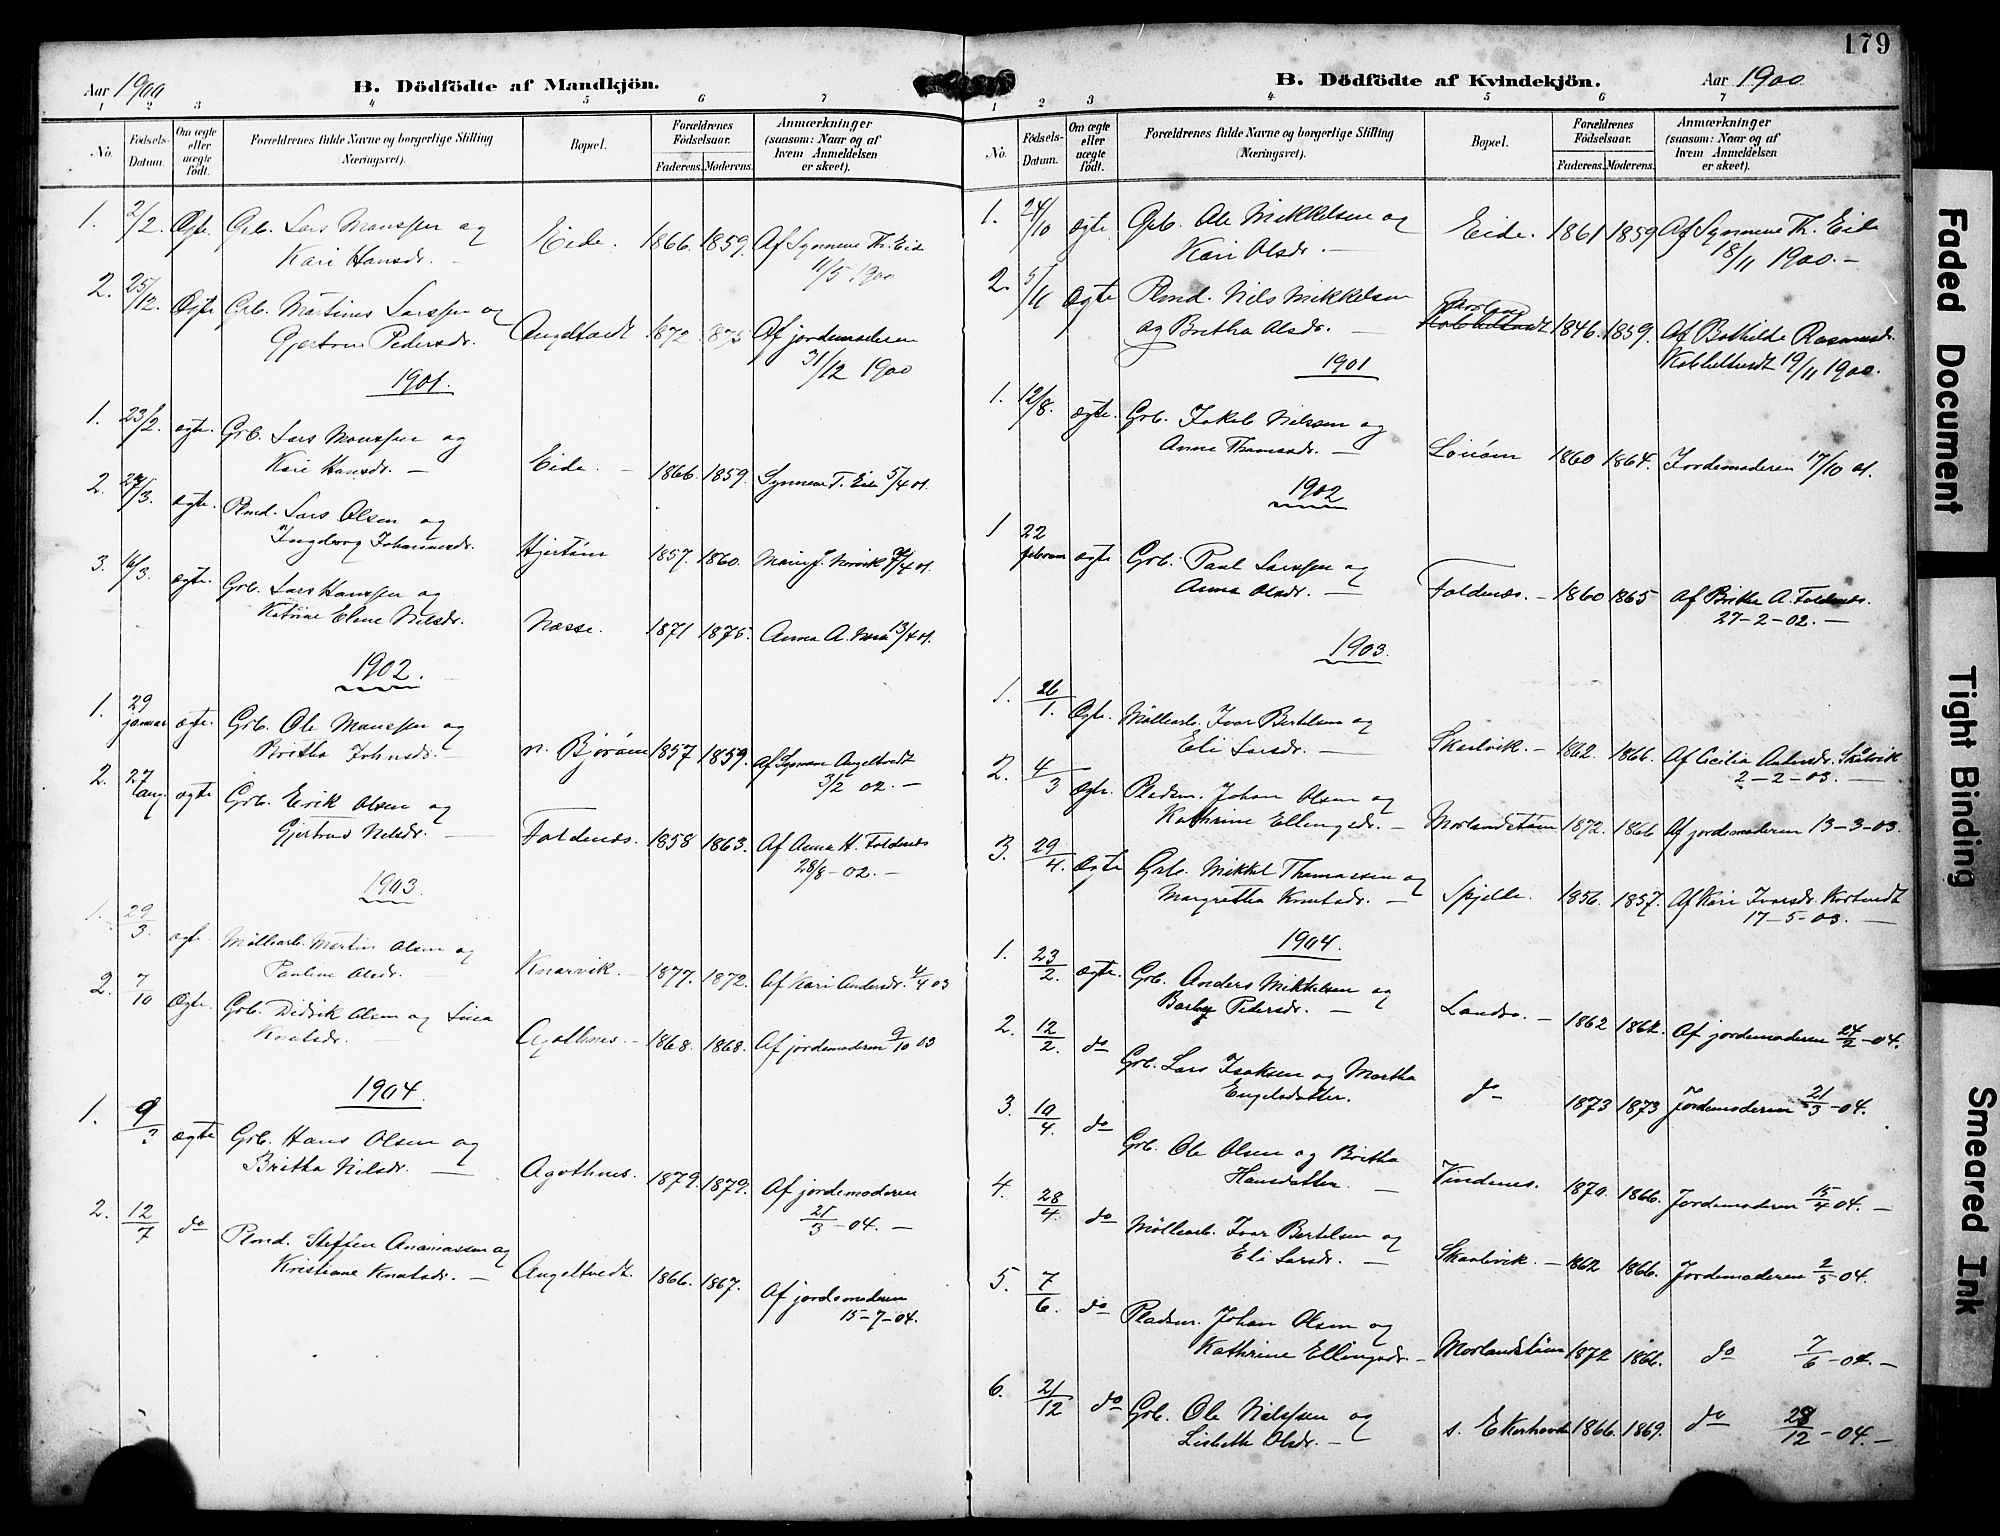 Aar 1900
B. Dödfödte af Mandkjön.
1 2 3 4 5 6 7
No.
Födsels-Datum.
Om ægte eller uægte födt.
Forældrenes fulde Navne og borgerlige Stilling (Næringsvei).
Bopæl.
Forældrenes Födselsaar.
Faderens. Moderens.
Anmærkninger (saasom: Naar og af hvem Anmeldelsen er skeet).
1. 2/2. Ægte. Grb. Lars Monssen og Eide. 1866. 1859. Af Synneve Th. Eide
Kari Hansdr. 11/5 1900
2. 25/12. Ægte Grb. Martines Larssen og Angeltvedt 1872. 1875 Af jordemoderen
Gjertrue Pedersdr. 31/12 1900
1901.
1. 23/2. ægte. Grb. Lars Monssen og Eide. 1866. 1859. Synneve T. Eide 5/4 01.
Kari Hansdr. —
2. 27/3. ægte. Plmd. Lars Olsen og Hjertøen 1857. 1860.
Ingeborg Johannesdr.
3. 16/3. ægte. Grb. Lars Hanssen og Næsse. 1871 1875. Anna A. Næsse 13/4 01.
Katrine Eline Nilsdr.
1902.
1. 29 januar ægte. Grb. Ole Monssen og n. Bjørøen 1857 1859. Af Synneve Angeltvedt
Britha Johnsdr. — 3/2 02. —
2. 27 aug. ægte Grb. Eerik Olsen og Foldenæs. 1858 1863. Af Anna H. Foldenæs
Gjertrud Nilsdr. — 28/8 - 02. —
1903.
1. 29/3. ægte. Møllearb. Martin Olsen og Knarvik. — 1877. 1872. Af Kari Andersdr. 4/4 03
Pauline Olsdr. —
2. 7/10 Ægte. Grb. Didrik Olsen og Lina Agothnes. — 1868. 1868. Af jordemoderen 9/10 03
Knutsdr. —
1904.
1. 9/3 ægte Grb. Hans Olsen og Agothnes. 1879. 1879. Af jordemoderen
Britha Nilsdr. — 21/3 - 04. —
2. 12/7 do Plmd. Steffen Ananiassen og Angeltvedt. 1866. 1867. Af jordemoderen
Kristiane Knutsdr. — 15-7-04.
179
B. Dödfödte af Kvindekjön.
Aar 1900
1 2 3 4 5 6 7
No.
Födsels-Datum.
Om ægte eller uægte födt.
Forældrenes fulde Navne og borgerlige Stilling (Næringsvei).
Bopæl.
Forældrenes Födselsaar.
Faderens. Moderens.
Anmærkninger (saasom: Naar og af hvem Anmeldelsen er skeet).
1. 24/10 ægte Grb. Ole Mikkelsen og Eide. 1861 1859 Af Synneve Th. Eide
Kari Olsdr. — 18/11 1900. —
2. 5/11 Ægte Plmd. Nils Mikkelsen 1846. 1859. Af Bothilde Rasmusdr.
og Britha Olsdr. — Kobbeltvedt 19/11 1900.
1901
1. 12/8. ægte. Grb. Jakob Nilssen og 1860 1864. Jordemoderen 17/10 01.
Anna Thomasdr. —
1902
1 22 februar ægte Grb. Paul Larssen og Foldenæs. — 1860 1865 Af Brithe A. Foldenæs.
Anna Olsdr. — 27-2-02. —
1903.
1. 26/1. Ægte. Møllearb. Ivar Bertelsen og Skaalvik. — 1862. 1866. Af Cicilia Andersdr. Skålvik
Eli Larsdr. — 2-2-03. —
2. 4/3 Ægte. Pladsm. Johan Olsen og Morlandstøen 1872. 1866 Af jordemoderen 13-3-03.
Kathrine Ellingsdr. —
3. 29/4. Ægte Grb. Mikkel Thomassen og Spjelle. 1856. 1857. Af Kari Ivarsdr. Kortvedt
Margretha Knutsdr. — 17-5-03. —
1904.
1. 23/2. ægte. Grb. Anders Mikkelsen og Landro. — 1862 1862. Af jordemoderen 24/2 - 04.
Pedersdr. —
2. 12/2. do Grb. Lars Isaksen og Martha do — 1873 1873 Jordemoderen 21/3 - 04.
Engelsdatter.
3. 10/4. do Grb. Ole Olsen og Britha Vindenes. 1870. 1866. Jordemoderen 15/4 04. —
Hansdatter. —
4. 28/4. do Møllearb. Ivar Bertelsen og Skaalevik. — 1862 1866. Jordemoderen 2/5 - 04.
Eli Larsdr. —
5. 7/6. do Pladsm. Johan Olsen og Morlandstøen 1872 1866. do 7/6 - 04. —
Kathrine Ellingsdr. —
6. 21/12 do Grb. Ole Nilssen og s. Ekerhovde 1866. 1869. do 28/12 - 04. —
Lisbeth Olsdr. —
Faded Document
Tight Binding
Smeared Ink